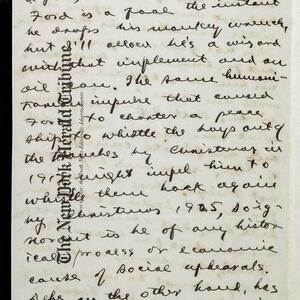 Ford is a fool the instant
he drops his monkey wrench,
but I'll allow he's a wizard
with that implement and an
oil can. The same humani-
tarian impulse that caused
Ford to charter a peace
ship to whistle the boys out of
the trenches by Christmas in
191 might impel him to
whistle them back again
by Christmas 1925, so ig-
norant is he of any histor
ical process or economic
cause of social upheavals.
on the other hand, has
The New York Herald Tribune